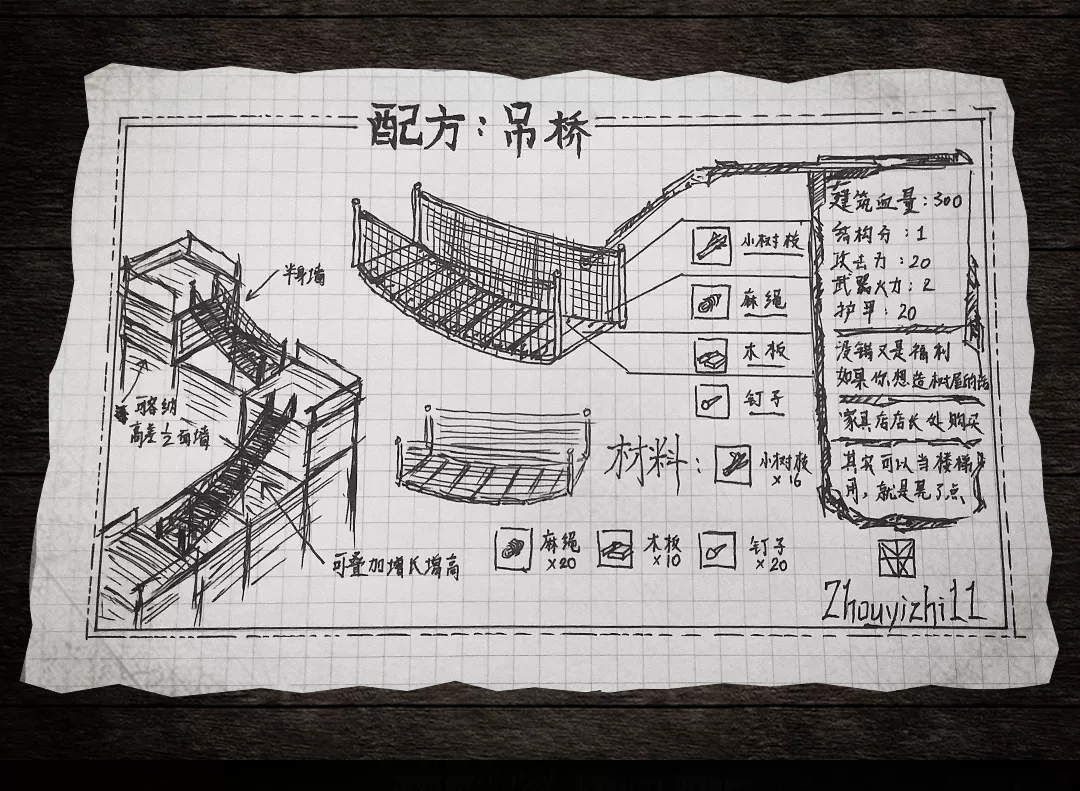 配方:吊桥
半身墙
可容纳
高差之面墙
可叠加增长增高
小树枝
麻绳
木板
钉子
材料:
小树枝
×16
麻绳
×20
木板
×10
钉子
×20
建筑血量:300
结构分:1
攻击力:20
武器火力:2
护甲:20
没错又是福利
如果你想造树屋的话
家具店店长处购买
其实可以当楼梯
用,就是晃了点
Zhouyizhi11